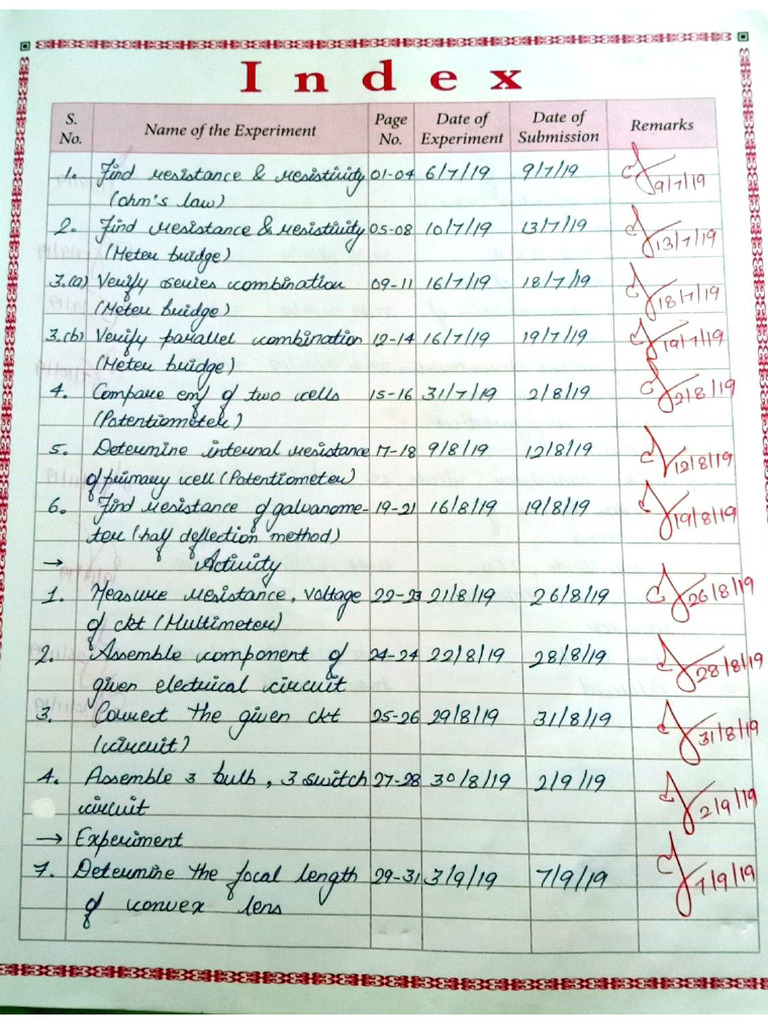 Index
S. No. Name of the Experiment Page No. Date of Experiment Date of Submission Remarks
1. Find resistance & resistivity 01-04 6/7/19 9/7/19 9/7/19
(ohm's law)
2. Find resistance & resistivity 05-08 10/7/19 13/7/19 13/7/19
(Meter bridge)
3.(a) Verify series combination 09-11 16/7/19 18/7/19 18/7/19
(Meter bridge)
3.(b) Verify parallel combination 12-14 16/7/19 19/7/19 19/7/19
(Meter bridge)
4. Compare emf of two cells 15-16 31/7/19 2/8/19 2/8/19
(Potentiometer)
5. Determine internal resistance 17-18 9/8/19 12/8/19 12/8/19
of primary cell (Potentiometer)
6. Find resistance of galvanome- 19-21 16/8/19 19/8/19 19/8/19
ter (half deflection method)
→ Activity
1. Measure resistance, voltage 22-23 21/8/19 26/8/19 26/8/19
of ckt (Multimeter)
2. Assemble component of 24-24 22/8/19 28/8/19 28/8/19
given electrical circuit
3. Correct the given ckt 25-26 29/8/19 31/8/19 31/8/19
(circuit)
4. Assemble 3 bulb, 3 switch 27-28 30/8/19 2/9/19 2/9/19
circuit
→ Experiment
7. Determine the focal length 29-31 3/9/19 7/9/19 7/9/19
of convex lens